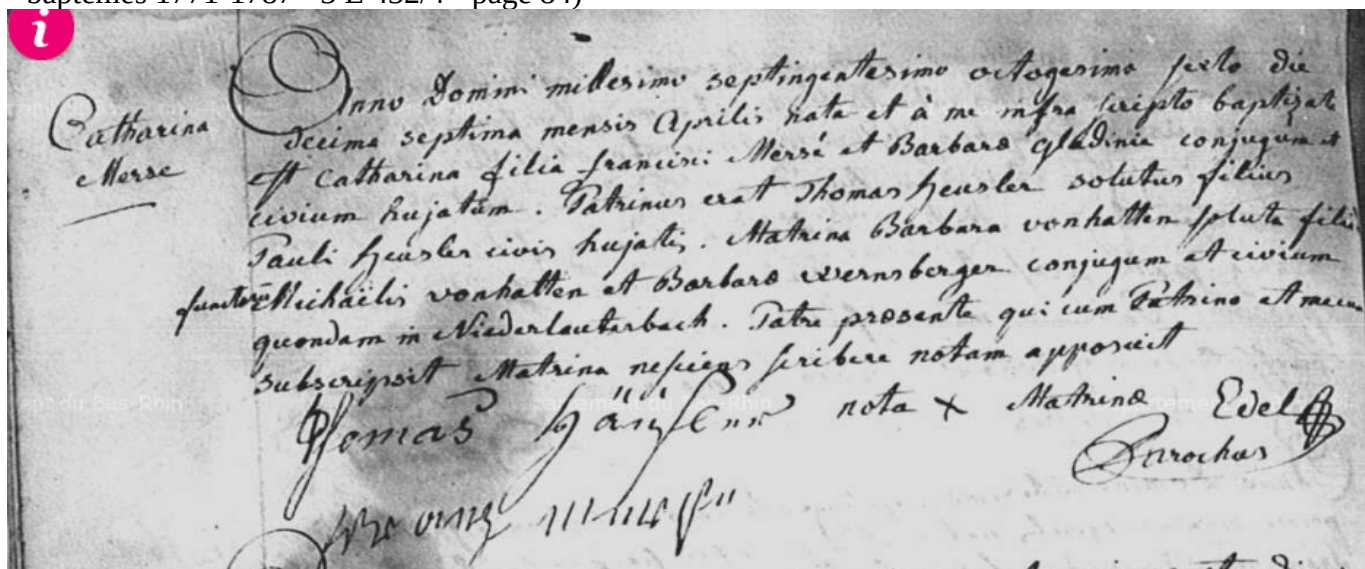 Baptêmes 1771-1787 – 3 E 432/4 – page 84)
i
Catharina
Merse
Anno Domini millesimo septingentesimo octogesimo sexto die
decima septima mensis Aprilis nata et à me infra scripto baptizat
est Catharina filia francisci Mersé et Barbara conjugum et
civium hujatum. Patrinus erat Thomas heusler solutus filius
Pauli heusler civis hujatis. Matrina Barbara vonhatten soluta filia
Michaëlis vonhatten et Barbara Wernsberger conjugum et civium
quondam in Niederlauterbach. Patre præsente qui cum Patrino et mecum
subscripsit Matrina nesciens scribere notam apposuit
Thomas nota x Matrinæ Edel
Parochus